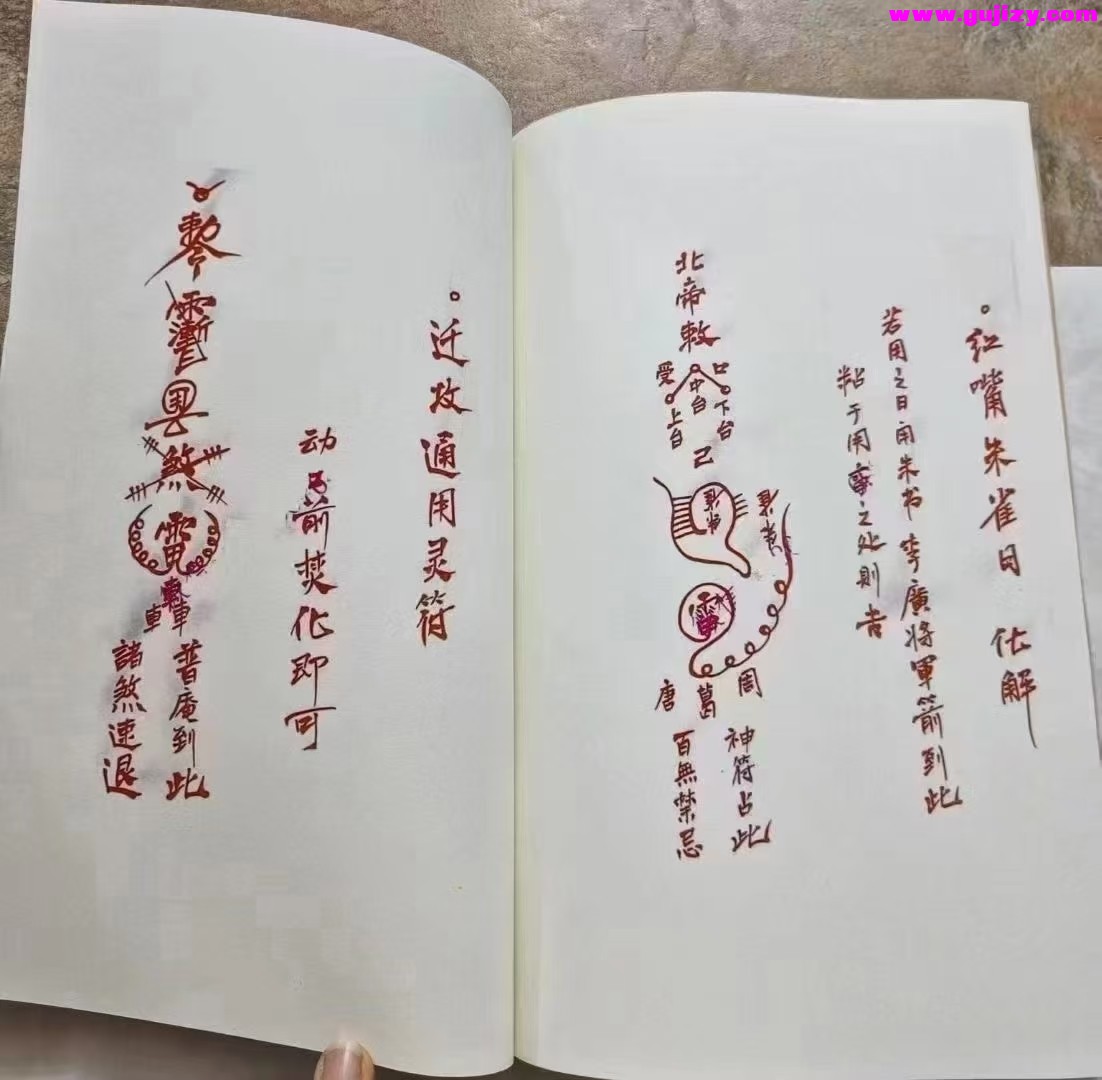 www.gujizy.com
红嘴朱雀日化解
若用之日用朱书李廣将軍箭到此
粘于用事之处則吉
北帝敕
口
下台
中台
受
上台
己
周
葛
唐
神符占此
百無禁忌
迁坟通用灵符
动 前焚化即可
煞
車
車
普庵到此
諸煞速退